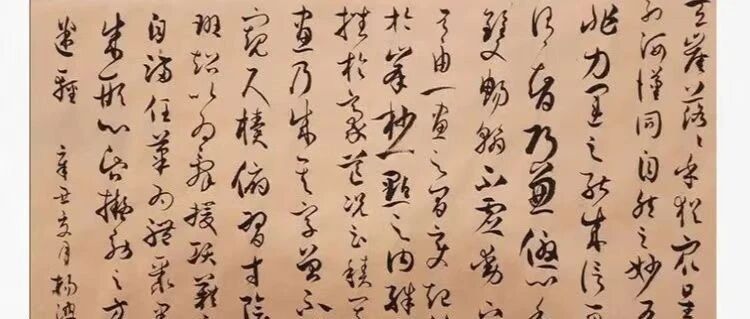 天崖落〻乎猶眾星
列河漢同自然之妙有
非力運之能成信可
謂智巧兼優心手
雙暢翰不虛動下
有由一畫之間變起伏
於峯杪一點之內殊
挫於豪芒況云積其
畫乃成其字曾不
窺尺牘俯習寸陰
班超以為辭援項籍
自滿任筆為體聚墨
成形心昏擬效之方
辛丑夏月楊